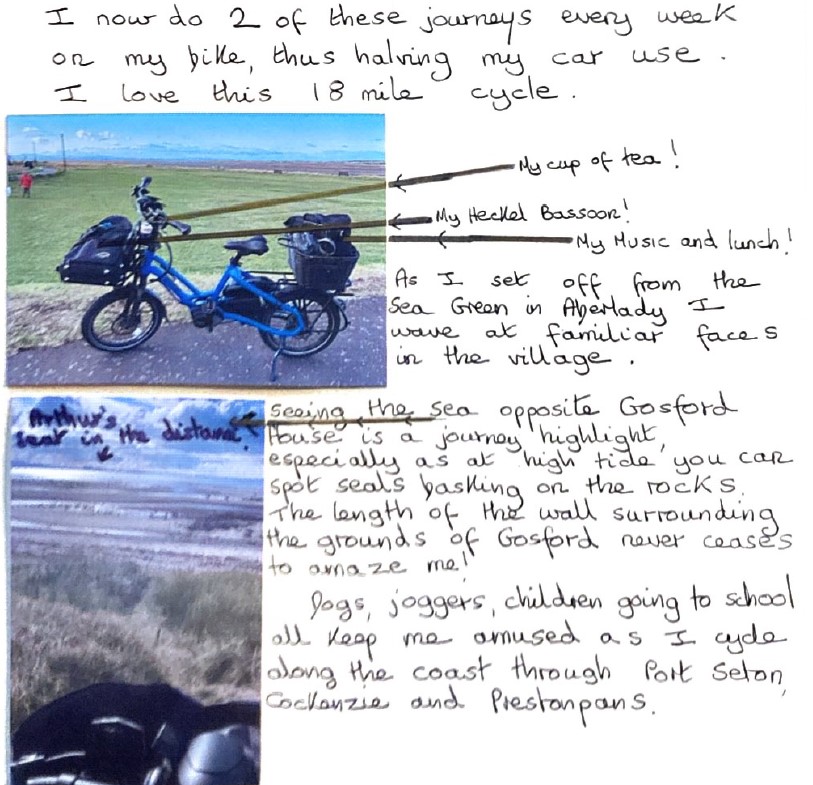 I now do 2 of these journeys every week
on my bike, thus halving my car use.
I love this 18 mile cycle.
My cup of tea!
My Heckel Bassoon!
My Music and lunch!
As I set off from the
Sea Green in Aberlady I
wave at familiar faces
in the village.
Arthur's
Seat in the distance!
Seeing the sea opposite Gosford
House is a journey highlight,
especially as at high tide you can
spot seals basking on the rocks.
The length of the wall surrounding
the grounds of Gosford never ceases
to amaze me!
Dogs, joggers, children going to school
all keep me amused as I cycle
along the coast through Port Seton,
Cockenzie and Prestonpans.